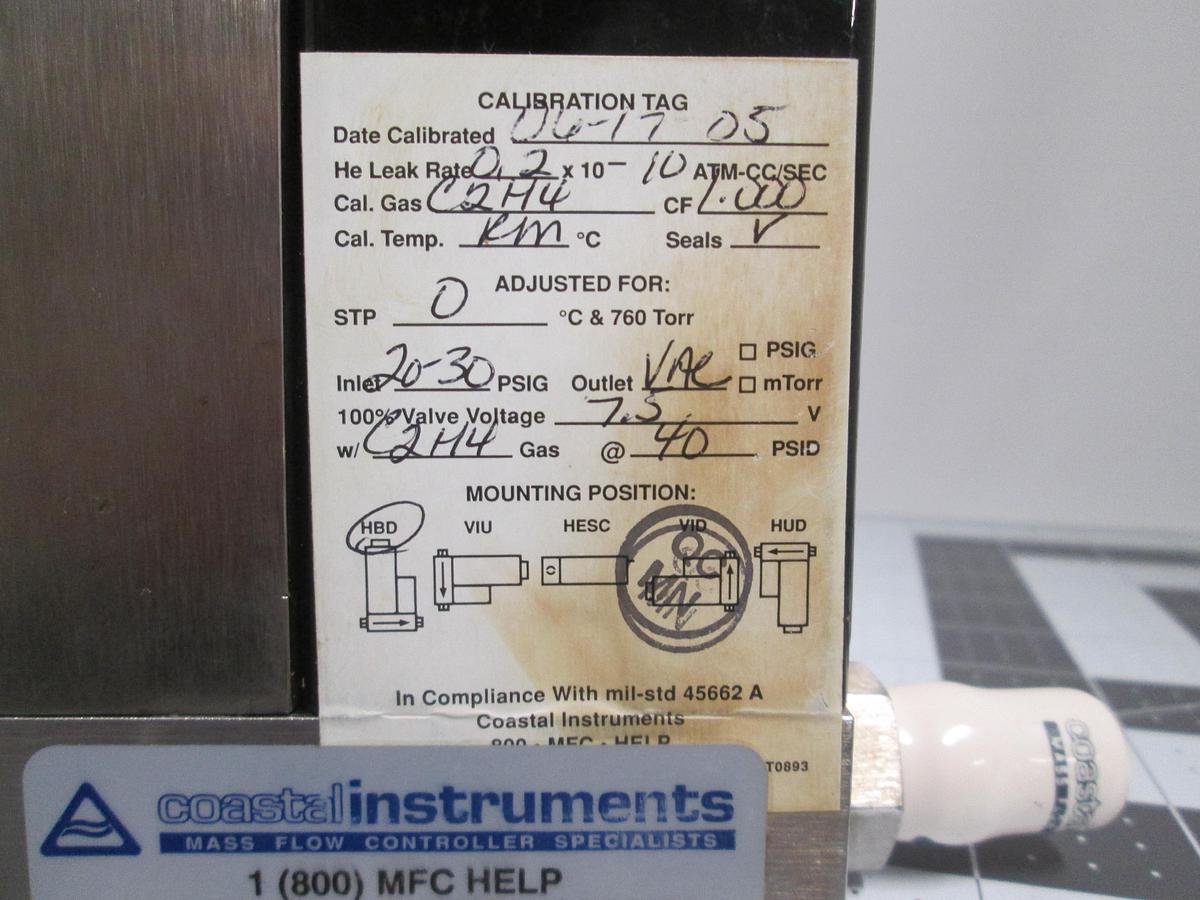 CALIBRATION TAG
Date Calibrated 06-17-05
He Leak Rate 0.2 x 10 - 10 ATM-CC/SEC
Cal. Gas C2H4 CF 1.000
Cal. Temp. RM °C Seals V
ADJUSTED FOR:
STP 0 °C & 760 Torr
Inlet 20-30 PSIG Outlet VAC □ PSIG □ mTorr
100% Valve Voltage 7.5 V
w/ C2H4 Gas @ 40 PSID
MOUNTING POSITION:
HBD VIU HESC VID HUD
QC
In Compliance With mil-std 45662 A
Coastal Instruments
800 - MFC - HELP
T0893
coastalinstruments
MASS FLOW CONTROLLER SPECIALISTS
1 (800) MFC HELP
coasta